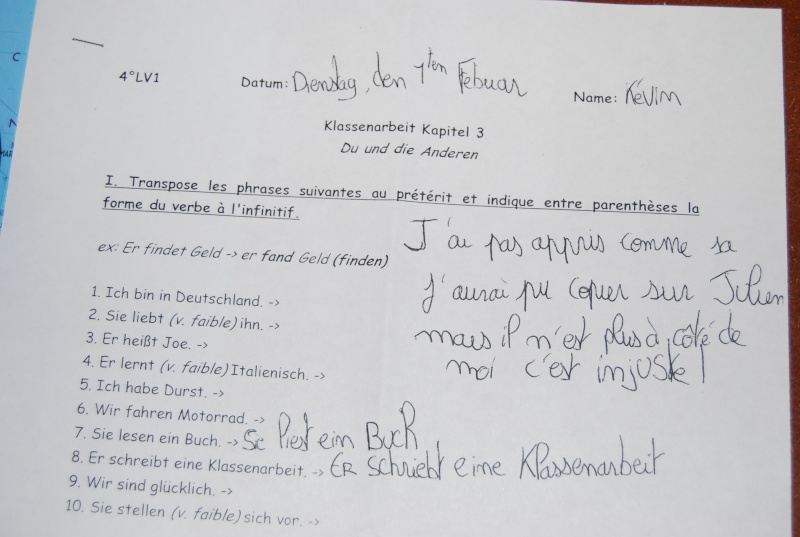 4°LV1 Datum: Dienstag, den 1ten Febuar Name: Kévin
Klassenarbeit Kapitel 3
Du und die Anderen
I. Transpose les phrases suivantes au prétérit et indique entre parenthèses la
forme du verbe à l'infinitif.
ex: Er findet Geld -> er fand Geld (finden)
J'ai pas appris comme sa
j'aurai pu copier sur Julien
mais il n'est plus à côté de
moi c'est injuste !
1. Ich bin in Deutschland. ->
2. Sie liebt (v. faible) ihn. ->
3. Er heißt Joe. ->
4. Er lernt (v. faible) Italienisch. ->
5. Ich habe Durst. ->
6. Wir fahren Motorrad. ->
7. Sie lesen ein Buch. -> Sie liest ein Buch
8. Er schreibt eine Klassenarbeit. -> Er schriebt eine Klassenarbeit
9. Wir sind glücklich. ->
10. Sie stellen (v. faible) sich vor. ->